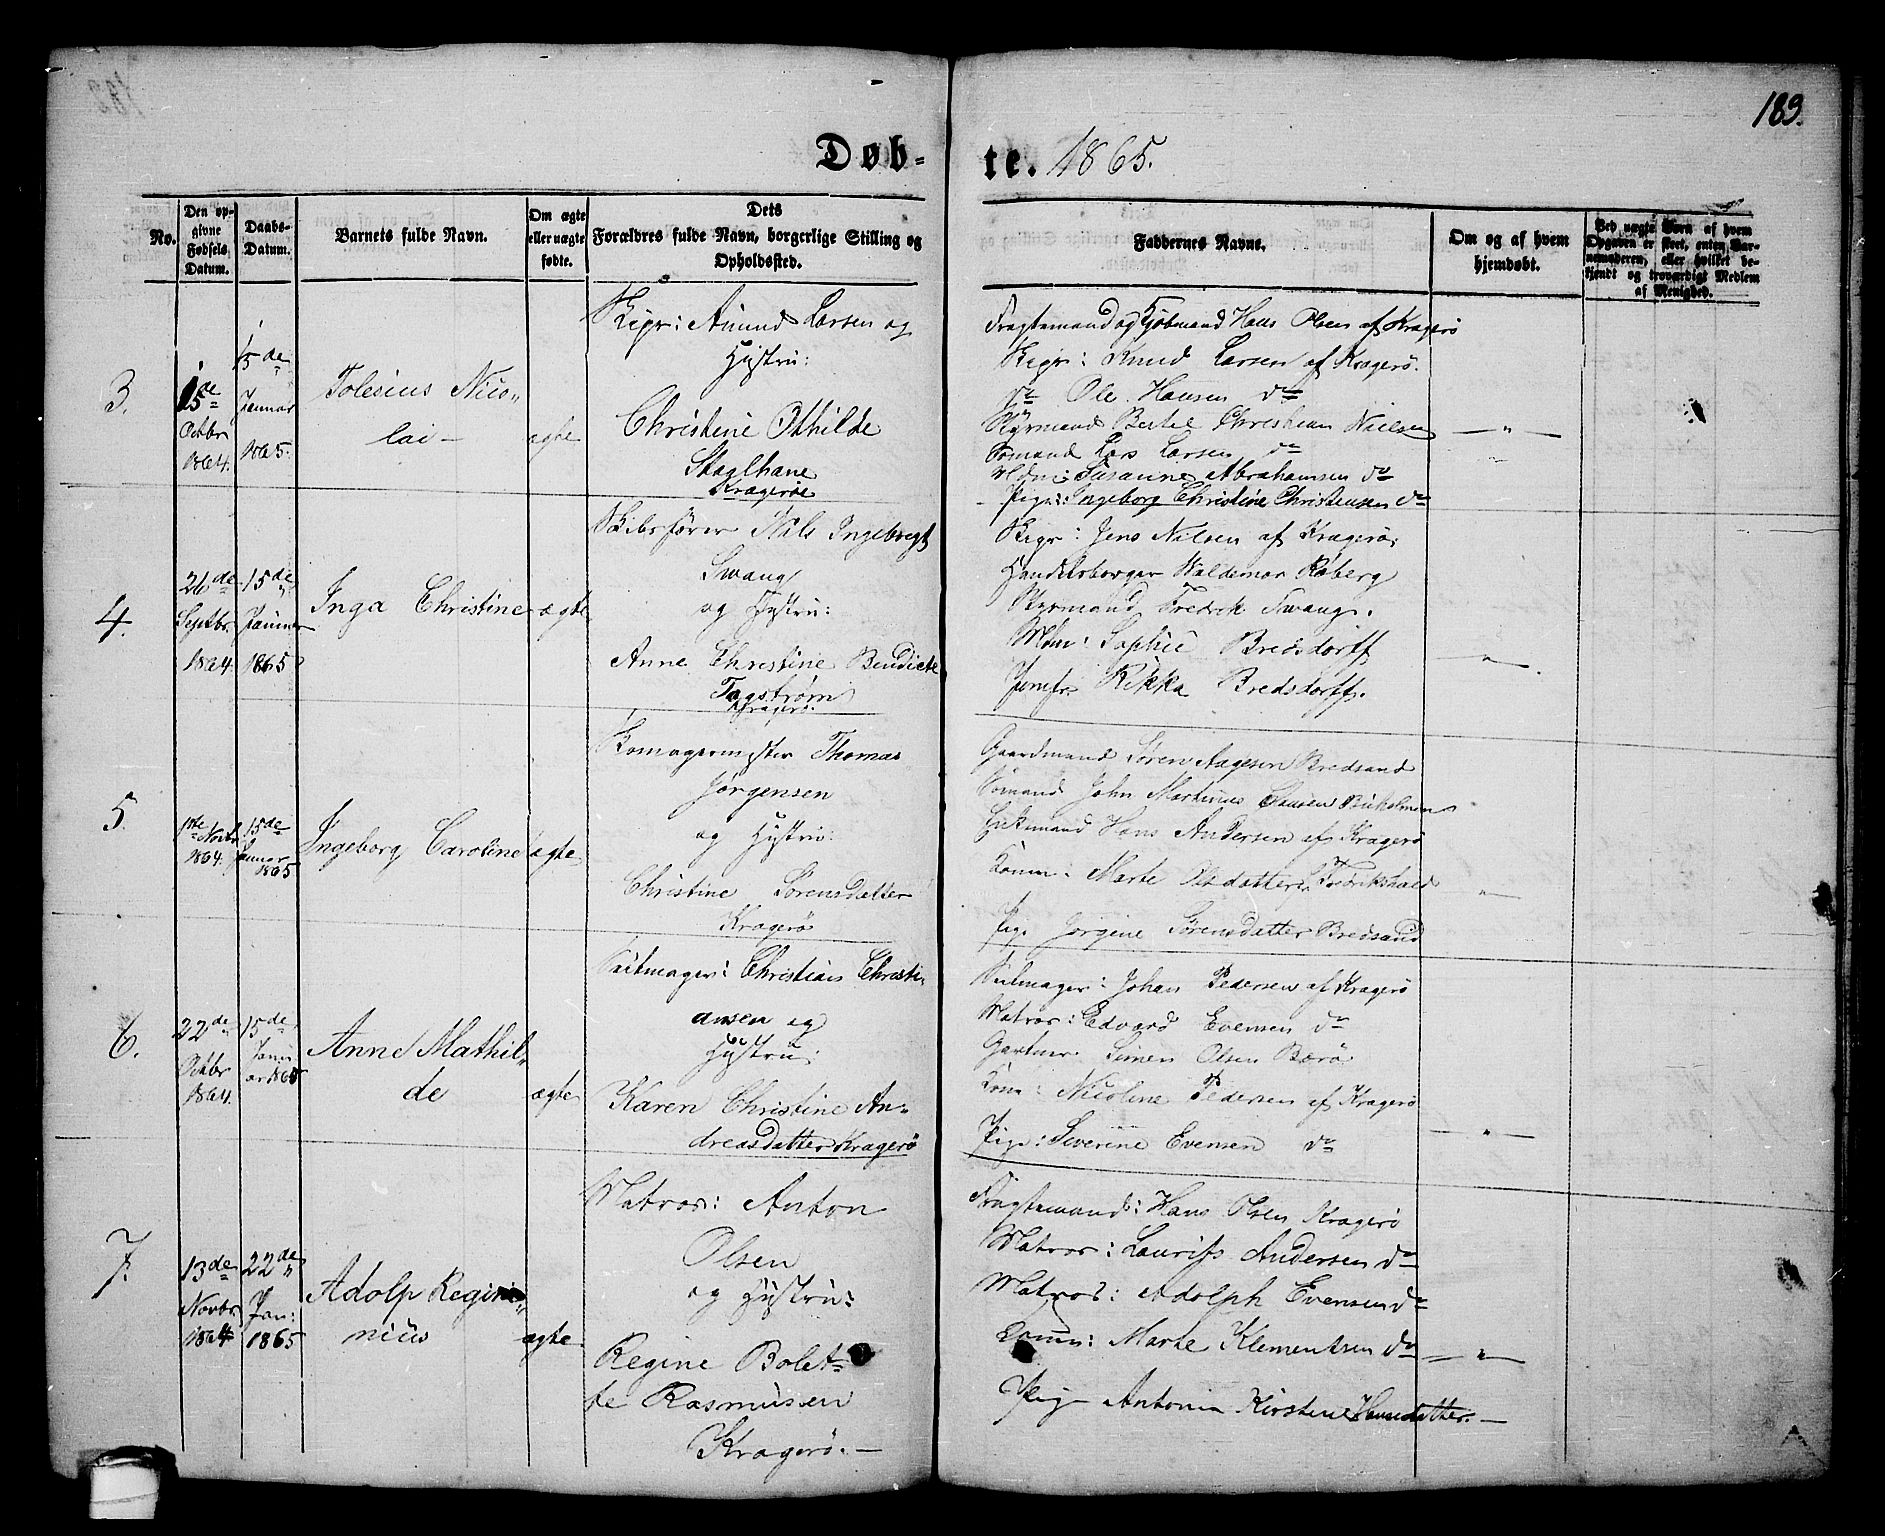 183.
Døb-
te. 1865.
No.
Den op-
givne
Fødsels
Datum.
Daabs-
Datum.
Barnets fulde Navn.
Om ægte
eller uægte
fødte.
Dets
Forældres fulde Navn, borgerlige Stilling og
Opholdssted.
Faddernes Navne.
Om og af hvem
hjemdøbt.
Ved uægte Børn af hvem
Opgaven er skeet, enten Bar-
nemoderen, eller hvilket be-
kjendt og troværdigt Medlem
af Menighed.
3.
15de
Octbr
1864.
15de
Januar
1865.
Tolesius Nico-
lai -
ægte
Skipr: Amund Larsen og
Hystru:
Christine Othilde
Staalhane
Kragerøe
Fragtemand og Kjøbmand Hans Olsen af Kragerø
Skipr: Knud Larsen af Kragerø.
do Ole Hansen do
Styrmand Bertel Christian Nielsen
Sømand Lars Larsen do
Mdm: Susanne Abrahamsen do
Pige: Ingeborg Christine Christensen do
— " —
4.
26de
Septbr.
1864
15de
Januar
1865
Inga Christine
ægte
Skibsfører Nils Ingebregt
Swang
og Hystru:
Anne Christine Bendicte
Tagstrøm
Kragerø.
Skipr: Jens Nilsen af Kragerø
Handelsborger Waldemar Røberg
Styrmand Fredrik Swang.
Mdm: Sophie Bredsdorff
Jomfr: Rikka Bredsdorff.
"
5.
1ste Novbr
1864.
15de
Januar
1865
Ingeborg Caroline
ægte
Komagermester Thomas
Jørgensen
og Hystru:
Christine Sørensdatter
Kragerø
Gaardmand Søren Aagesen Bredsand
Sømand John Martinus Hansen Buholmen
Huusmand Hans Andersen af Kragerø
Kone: Marte Olsdatter Fredrikshald
Pige Jørgine Sørensdatter Bredsand
"
6.
22de
Octbr
1864.
15de
Janu
ar 1865
Anne Mathil-
de
ægte
Seilmager: Christian Christi-
ansen og
Hystru:
Karen Christine An-
dreasdatter Kragerø
Seilmager: Johan Pedersen af Kragerø
Matros: Edvard Evensen do
Gartner Simen Olsen Bærø
Kone: Nicoline Pedersen af Kragerø
Pige: Severine Evensen do
— " —
7.
13de
Novbr
1864
22de
Jan:
1865
Adolp Regini-
nius
ægte
Matros: Anton
Olsen
og Hystru:
Regine Bolet-
te Rasmussen
Kragerø. —
Fragtemand: Hans Olsen Kragerø
Matros: Laurits Andersen do
Matros: Adolph Evensen do
Kone: Marte Klementsen do
Pige Antonia Kirstine Hansdatter. —
— " —